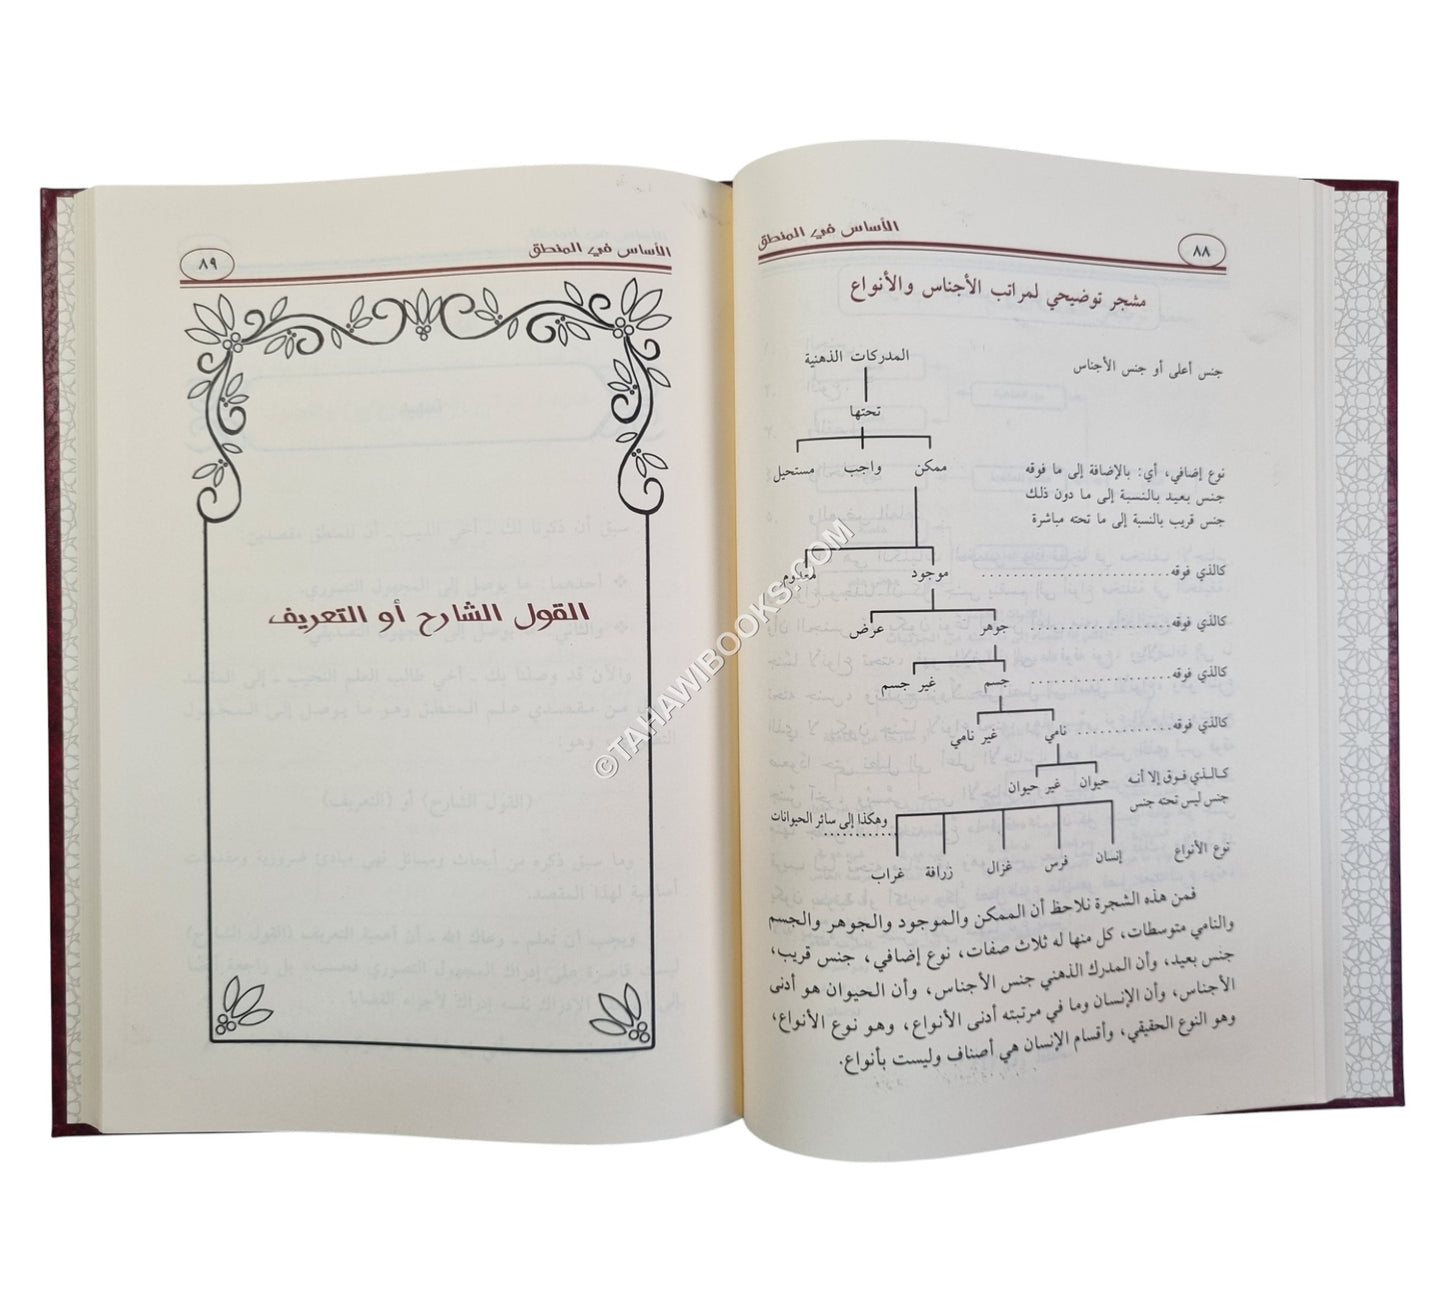 الأساس في المنطق
٨٨
مشجر توضيحي لمراتب الأجناس والأنواع
جنس أعلى أو جنس الأجناس
المدركات الذهنية
تحتها
ممكن واجب مستحيل
نوع إضافي، أي: بالإضافة إلى ما فوقه
جنس بعيد بالنسبة إلى ما دون ذلك
جنس قريب بالنسبة إلى ما تحته مباشرة
كالذي فوقه.................... موجود معدوم
كالذي فوقه.................... جوهر عرض
كالذي فوقه.................... جسم غير جسم
كالذي فوقه............. نامي غير نامي
كالذي فوق إلا أنه
جنس ليس تحته جنس
حيوان غير حيوان
وهكذا إلى سائر الحيوانات
............
نوع الأنواع إنسان فرس غزال زرافة غراب
فمن هذه الشجرة نلاحظ أن الممكن والموجود والجوهر والجسم
والنامي متوسطات، كل منها له ثلاث صفات، نوع إضافي، جنس قريب،
جنس بعيد، وأن المدرك الذهني جنس الأجناس، وأن الحيوان هو أدنى
الأجناس، وأن الإنسان وما في مرتبته أدنى الأنواع، وهو نوع الأنواع،
وهو النوع الحقيقي، وأقسام الإنسان هي أصناف وليست بأنواع.
الأساس في المنطق
٨٩
القول الشارح أو التعريف
©TAHAWIBOOKS.COM